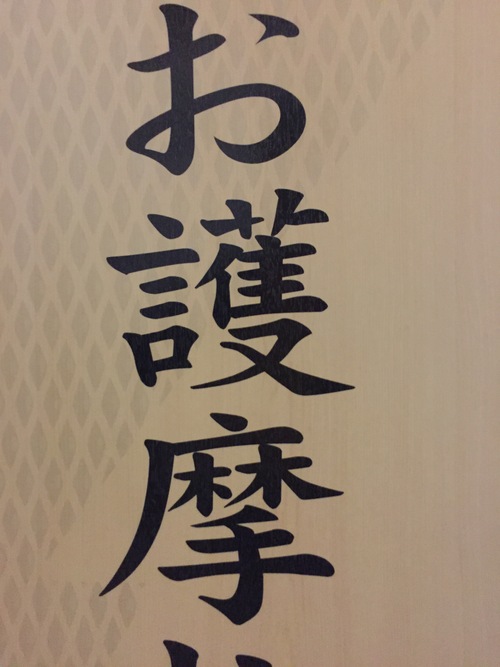 お護摩